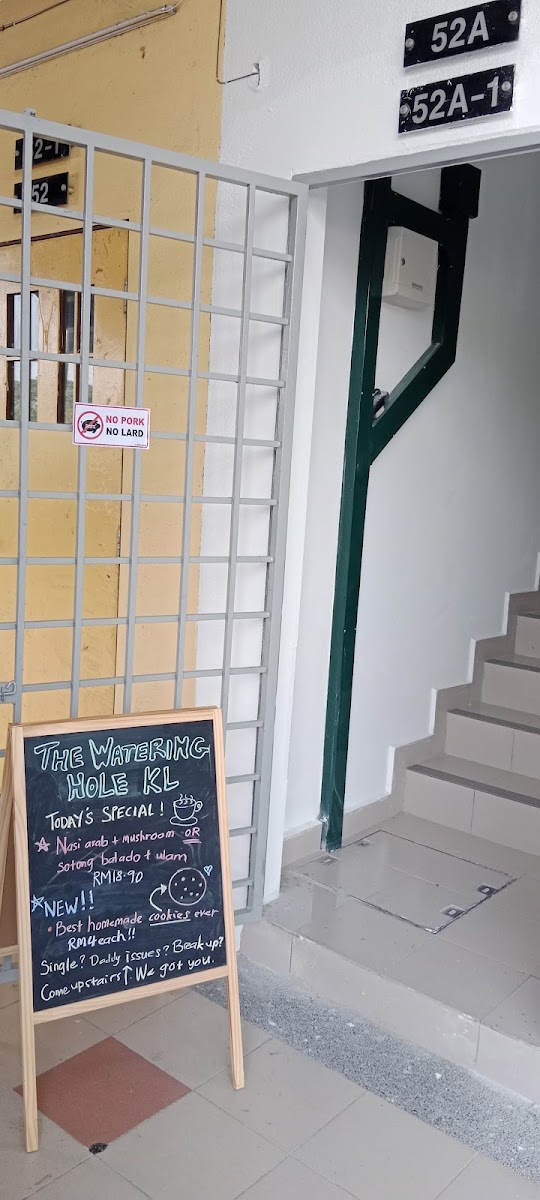 52A
52A-1
2-1
52
NO PORK
NO LARD
THE WATERING
HOLE KL
TODAY'S SPECIAL!
Nasi arab + mushroom OR
sotong balado + ulam
RM18.90
NEW!!
• Best homemade cookies ever
RM4 each!!
Single? Daddy issues? Break up?
Come upstairs ↑ We got you.